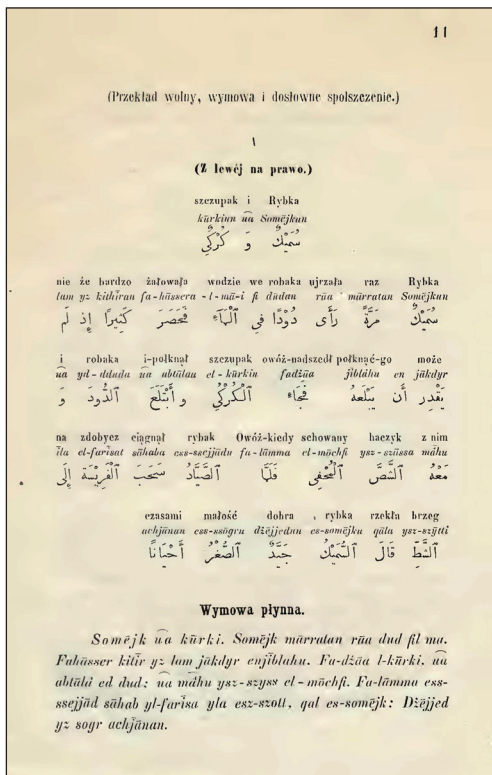 11
(Przekład wolny, wymowa i dosłowne spolszczenie.)
1
(Z lewéj na prawo.)
szczupak i Rybka
kūrkinn ua Somêjkun
سُمَيْكٌ وَ كُرْكِيٌّ
nie że bardzo żałowała wodzie we robaka ujrzała raz Rybka
lam yz kithīran fa-hässera -l-mā-i fi dūdan rāa märratan Somêjkun
سُمَيْكٌ مَرَّةً رَأَى دُودًا فِي ٱلْمَاءِ فَحَصَرَ كَثِيرًا إِذ لَم
i robaka i-połknął szczupak owóż-nadszedł połknąć-go może
ua yd-dduda ua abtälau el-kürkin fadžāa jiblähu en jäkdyr
يَقْدِر أَن يَبْلَعهُ فَجَاءَ ٱلْكُرْكِيُّ و ٱبْتَلَعَ ٱلدُّودَ وَ
na zdobycz ciągnął rybak Owóż-kiedy schowany haczyk z nim
ila el-farīsat sähaba ess-ssejjādu fa-lämma el-möchfi ysz-szüssa mähu
مَعْهُ ٱلشَّصَّ ٱلْمُخْفِى فَلَمَّا ٱلصَّيَّادُ سَحَبَ ٱلْفَرِيسَة إِلَى
czasami małość dobra , rybka rzekła brzeg
achjānan ess-ssögru džêjjedun es-somêjku qāla ysz-szjtti
ٱلشَّطِّ قَالَ ٱلسُّمَيْكُ جَيِّدٌ ٱلصُّغْرُ أَحْيَانًا
Wymowa płynna.
Somêjk ua kūrki. Somêjk märratan rāa dud fil ma.
Fahässer kitīr yz lam jäkdyr enjiblahu. Fa-džāa l-kūrki, ua
abtälá ed dud; ua mähu ysz-szyss el-möchfi. Fa-lämma ess-
ssejjād sähab yl-farīsa yla esz-szott, qal es-somêjk: Džêjjed
yz sogr achjānan.